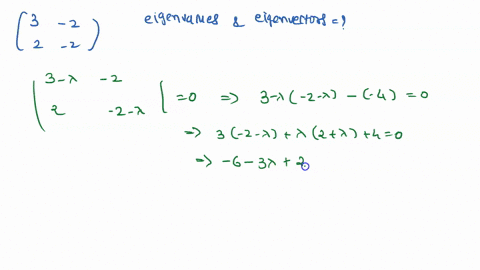 ( 3 -2 eigenvalues & eigenvectors = ?
2 -2 )
| 3-λ -2
2 -2-λ | = 0 => 3-λ(-2-λ) - (-4) = 0
=> 3(-2-λ) + λ(2+λ) + 4 = 0
=> -6 - 3λ + 2